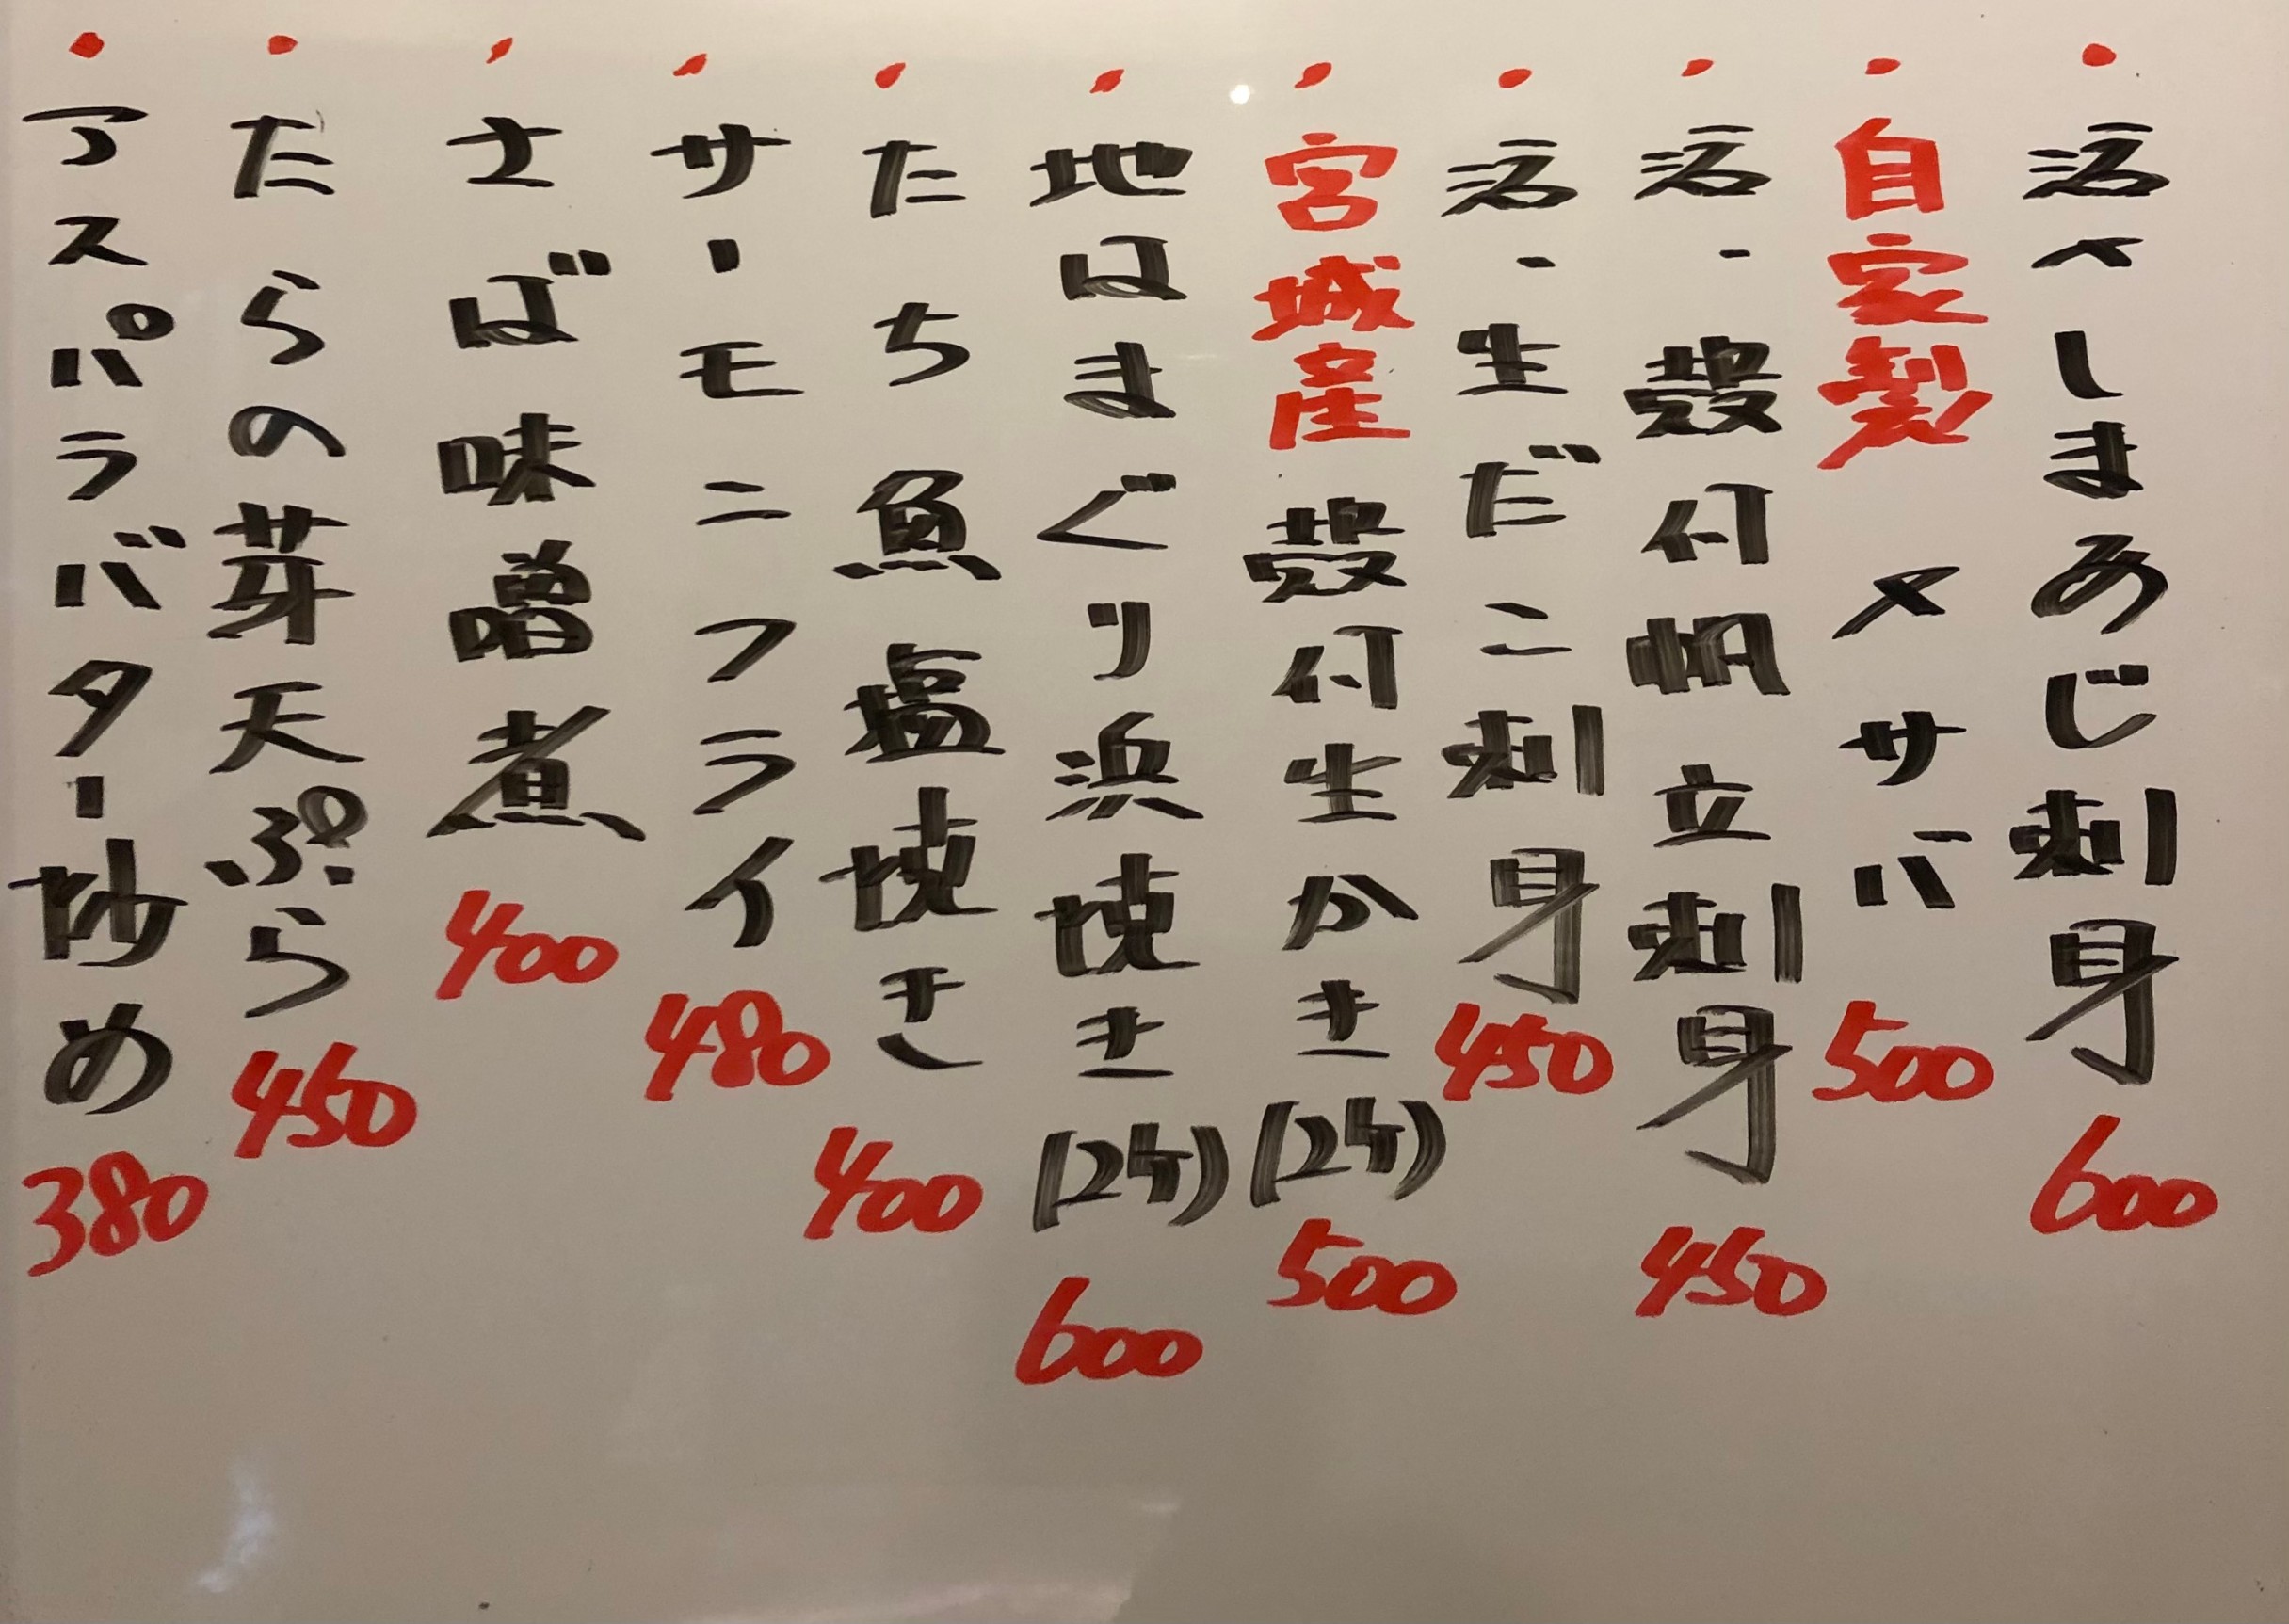 ・活〆しまあじ刺身 600
・自家製 〆サバ 500
・活・殻付帆立刺身 450
・活・生だこ刺身 450
・宮城産 殻付生かき(2ケ) 500
・地はまぐり浜焼き(2ケ) 600
・たち魚塩焼き 400
・サーモンフライ 480
・さば味噌煮 400
・たらの芽天ぷら 450
・アスパラバター炒め 380